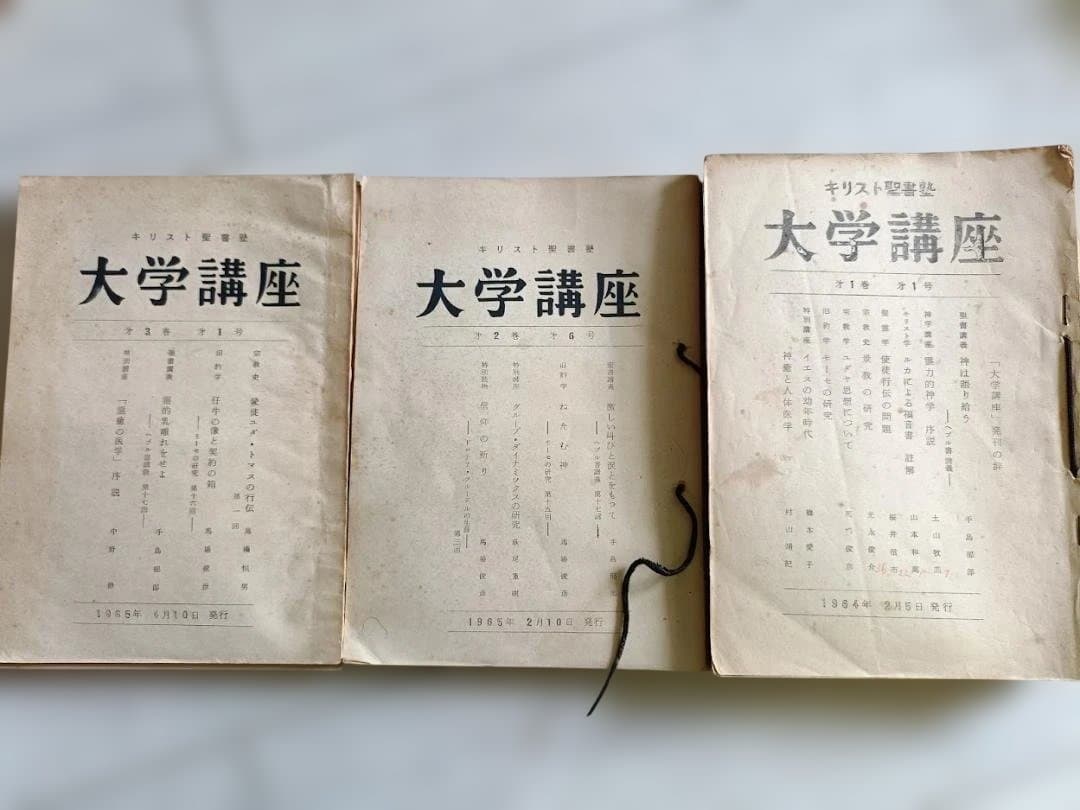 キリスト聖書塾
大学講座
才3巻 才1号
宗教史 使徒ユダ・トマスの行伝 第一回 高橋恒男
旧約学 仔牛の像と契約の箱
――モーセの研究 第十六回―― 馬場俊彦
聖書講義 霊的乳離れをせよ
――ヘブル書講義 第十七回―― 手島郁郎
特別講座 「霊癒の医学」序説 中野
1965年 4月10日 発行
キリスト聖書塾
大学講座
才2巻 才6号
聖書講義 激しい叫びと涙とをもって
――ヘブル書講義 第十七回―― 手島郁郎
旧約学 ねたむ神
――モーセの研究 第十五回―― 馬場俊彦
特別講座 グループ・ダイナミックスの研究
特別読物 信仰の祈り
第二回
1965年 2月10日 発行
キリスト聖書塾
大学講座
才1巻 才1号
「大学講座」発刊の辞
聖書講義 神は語り給う
――ヘブル書講義―― 手島郁郎
神学講座 霊力的神学 序説 土山牧羔
キリスト学 ルカによる福音書 註解 山本和萬
聖霊学 使徒行伝の問題 桜井信市
宗教史 景教の研究
宗教学 ユダヤ思想について
旧約学 モーセの研究
イエスの幼年時代 橋本愛子
特別講座 神癒と人体医学 村山靖記
1964年 2月5日 発行